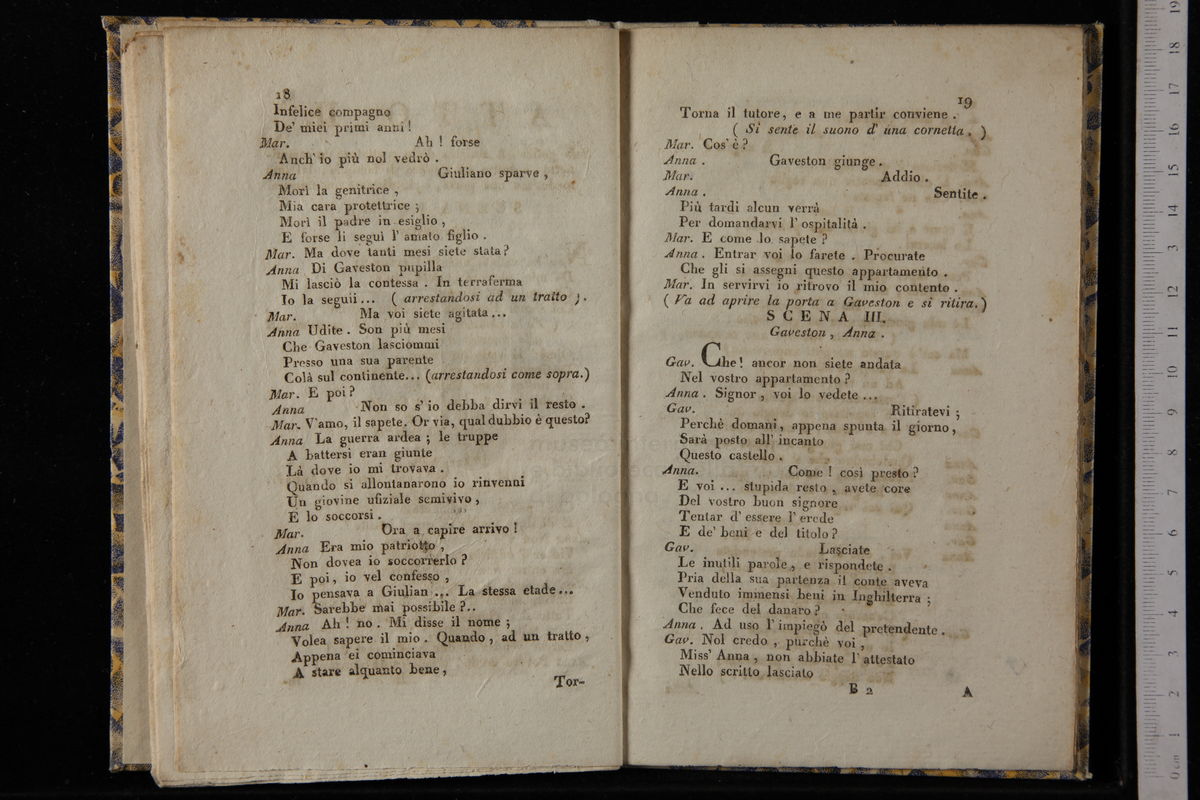 18
Infelice compagno
De' miei primi anni!
Mar. Ah! forse
Anch' io più nol vedrò.
Anna Giuliano sparve,
Morì la genitrice,
Mia cara protettrice;
Morì il padre in esiglio,
E forse li seguì l' amato figlio.
Mar. Ma dove tanti mesi siete stata?
Anna Di Gaveston pupilla
Mi lasciò la contessa. In terraferma
Io la seguii... (arrestandosi ad un tratto).
Mar. Ma voi siete agitata...
Anna Udite. Son più mesi
Che Gaveston lasciommi
Presso una sua parente
Colà sul continente... (arrestandosi come sopra.)
Mar. E poi?
Anna Non so s' io debba dirvi il resto.
Mar. V'amo, il sapete. Or via, qual dubbio è questo?
Anna La guerra ardea; le truppe
A battersi eran giunte
Là dove io mi trovava.
Quando si allontanarono io rinvenni
Un giovine ufiziale semivivo,
E lo soccorsi.
Mar. Ora a capire arrivo!
Anna Era mio patriotto,
Non dovea io soccorrerlo?
E poi, io vel confesso,
Io pensava a Giulian... La stessa etade...
Mar. Sarebbe mai possibile?..
Anna Ah! no. Mi disse il nome;
Volea sapere il mio. Quando, ad un tratto,
Appena ei cominciava
A stare alquanto bene,
Tor-
19
Torna il tutore, e a me partir conviene.
(Si sente il suono d' una cornetta.)
Mar. Cos' è?
Anna. Gaveston giunge.
Mar. Addio.
Anna. Sentite.
Più tardi alcun verrà
Per domandarvi l' ospitalità.
Mar. E come lo sapete?
Anna. Entrar voi lo farete. Procurate
Che gli si assegni questo appartamento.
Mar. In servirvi io ritrovo il mio contento.
(Va ad aprire la porta a Gaveston e si ritira.)
SCENA III.
Gaveston, Anna.
Gav. Che! ancor non siete andata
Nel vostro appartamento?
Anna. Signor, voi lo vedete...
Gav. Ritiratevi;
Perchè domani, appena spunta il giorno,
Sarà posto all' incanto
Questo castello.
Anna. Come! così presto?
E voi... stupida resto, avete core
Del vostro buon signore
Tentar d' essere l' erede
E de' beni e del titolo?
Gav. Lasciate
Le inutili parole, e rispondete.
Pria della sua partenza il conte aveva
Venduto immensi beni in Inghilterra;
Che fece del danaro?
Anna. Ad uso l' impiegò del pretendente.
Gav. Nol credo, purchè voi,
Miss' Anna, non abbiate l' attestato
Nello scritto lasciato
B 2 A